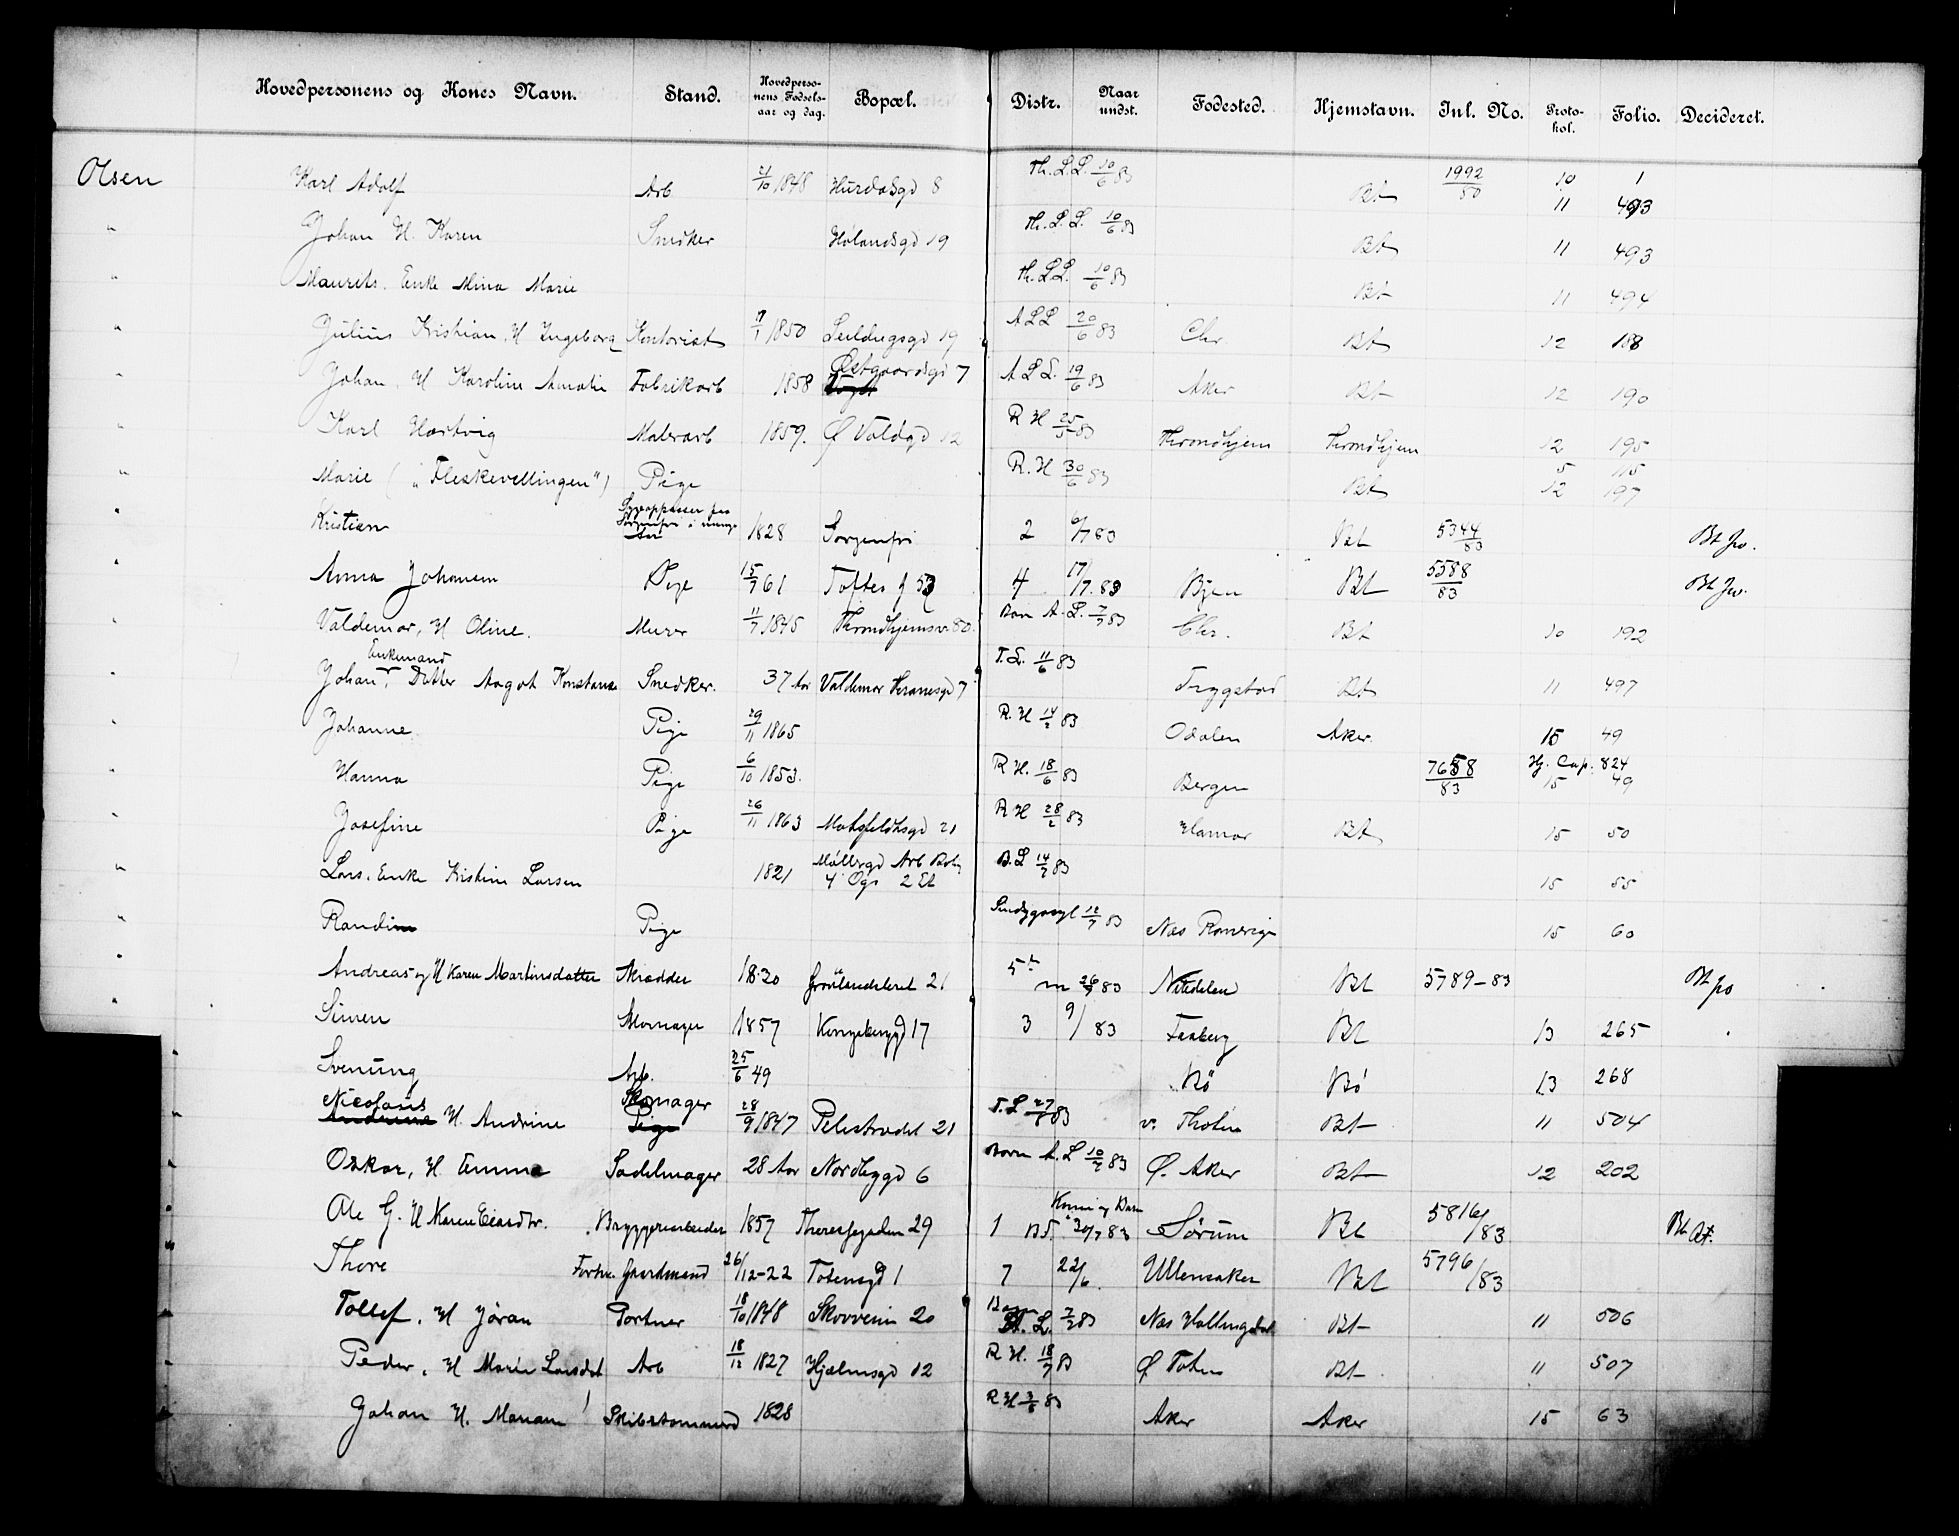 Hovedpersonens og Kones Navn. Stand. Hovedperso- nens Fødsels- aar og dag. Bopæl. Distr. Naar undst. Fødested. Hjemstavn. Jnl. No. Proto- kol. Folio. Decideret.
Olsen Karl Adolf Arb 21/10 1848 Hurdalsgd 8 Th. L.L. 10/6 83 Bt 1992/80 10 1
11 493
" Johan H. Karen Snedker Holandsgd 19 Th. L.L. 10/6 83 Bt 11 493
" Maurits. Enke Mina Marie Th. L.L. 10/6 83 Bt 11 494
" Julius Kristian, H Ingeborg Kontorist 1850 19 A L L 20/6 83 Chr. Bt 12 188
" Johan, H Karoline Amalie Fabrikarb 1858 Østgaardsgd 7 A L L. 19/6 83 Aker Bt 12 190
" Karl Hartvig Malerarb 1859. Ø Voldgd 12 R H 25/5 83 Throndhjem Throndhjem 12 195
" Marie ("Fleskevellingen") Pige R. H 30/6 83 Bt 5 115
12 197
" Kristian Sygepasser paa Sorgenfri i mange Aar 1828 Sorgenfri 2 6/7 83 Bt 5344/83 Bt Jro.
" Anna Johansen Pige 15/7 61 Toftes g 53 4 17/7. 83 Bt 5588/83 Bt Jro.
" Valdemar, H Oline. Murer 11/7 1845 Throndhjemsv. 80. Barn A. L. 7/7 83 Chr. Bt 10 192
" Johan, Enkemand Datter Aagot Konstanse Snedker. 37 Aar Valdemar Thranesgd 7 T. L. 11/6 83 Trygstad Bt 11 497
" Johanne Pige 29/11 1865 R. H 14/2 83 Odalen Aker 15 49
" Hanna Pige 6/10 1853. R H. 18/6 83 Bergen 7658/83 Hj. Cap. 824
15 49
" Josefine Pige 26/11 1863 Motzfeldtsgd 21 R H 28/2 83 Hamar Bt 15 50
" Lars. Enke Kristine Larsen 1821 Møllergd Arb Bolig 4 Opg 2 Et B. L 14/7 83 15 55
" Randi Pige Sindsygeasyl 12/7 83 Næs Romerige 15 60
" Andreas og H Karen Martinsdatter Skrædder 1830 Grønlandsleret 21 5 m 26/7 83 Nitedalen Bt 5789-83 Bt Jro
" Simen Skomager 1857 Kongsberggd 17 3 9/ 83 Faaberg Bt 13 265
Svenung Arb. 25/6 49 Bø Bø 13 268
Nicolaus H. Andrine Skomager 28/9 1847 Pilestrædet 21 T. L 27/6 83 v. Thoten Bt 11 504
Oskar, H Emma Sadelmager 28 Aar Nordbygd 6 Barn A. L 10/7 83 Ø. Aker Bt 12 202
Ole G. H Karen Bryggeriarbeider 1857 Theresesgaden 29 1 Kone og Barn B.S. 30/7 83 Sørum Bt 5816/83 Bt
Thore Forhv. Gaardmand 26/12-22 Totensgd 1 7 22/6. Ullensaker Bt 5796/83
Tollef, H Jøran Portner 18/10 1848 Skovveien 20 Barn A. L. 7/7 83 Næs Hallingdal Bt 11 506
Peder, H Marie Larsdat Arb 18/12 1827 Hjelmsgd 12 R H. 18/7 83 Ø Toten Bt 11 507
Johan H. Mariane Skibstømmermd 1828 R H 3/8 83 Aker Aker 15 63